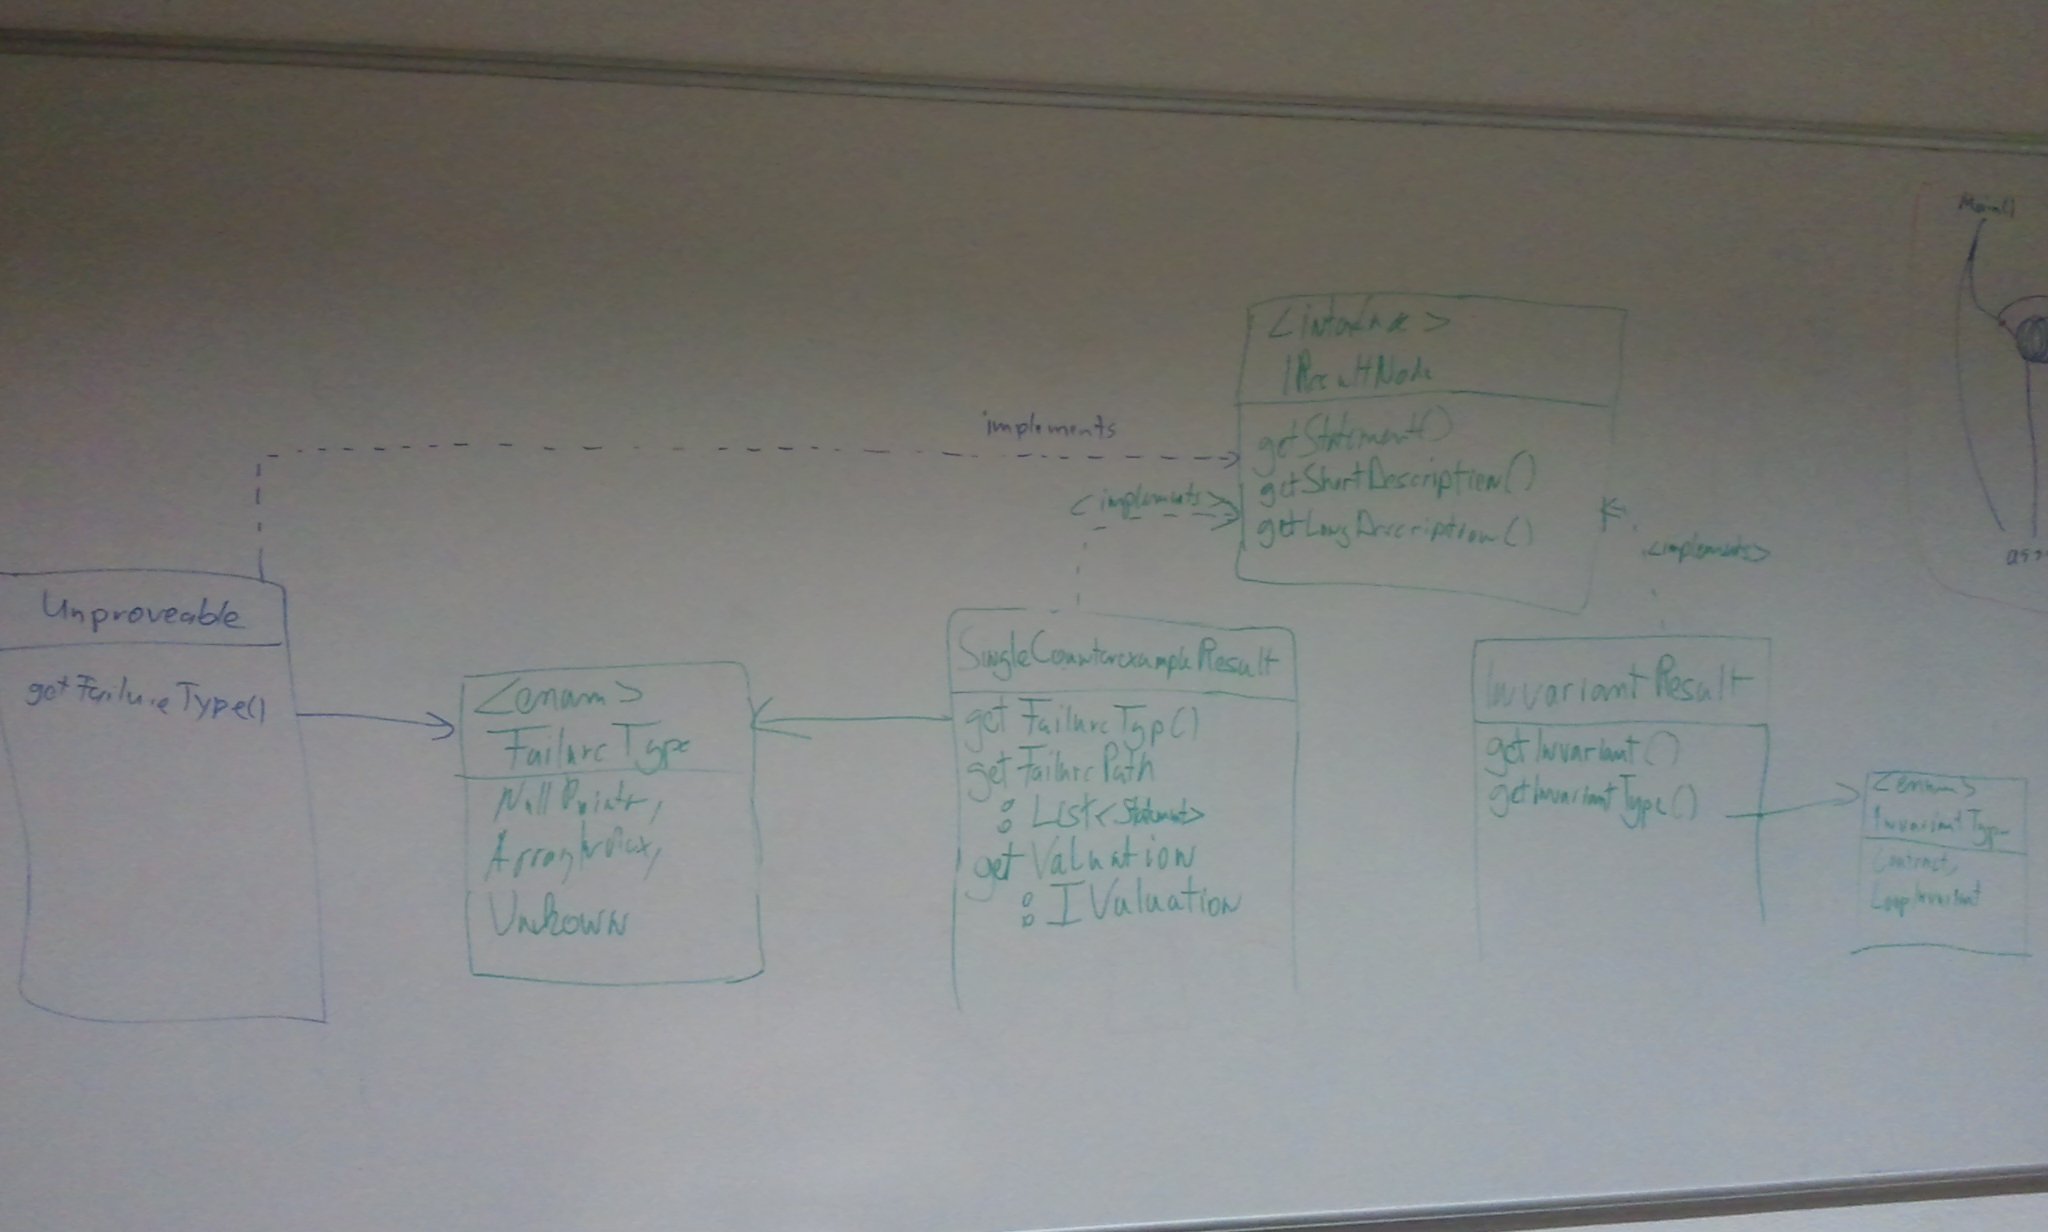 Main()
<interface>
IResultNode
getStatement()
getShortDescription()
getLongDescription()
implements
<implements>
<implements>
Unproveable
getFailureType()
<enum>
FailureType
NullPointer,
ArrayIndex,
Unkown
SingleCounterexampleResult
getFailureTyp()
getFailurePath
: List<Statement>
getValuation
: IValuation
InvariantResult
getInvariant()
getInvariantType()
<enum>
InvariantType
Contract,
LoopInvariant